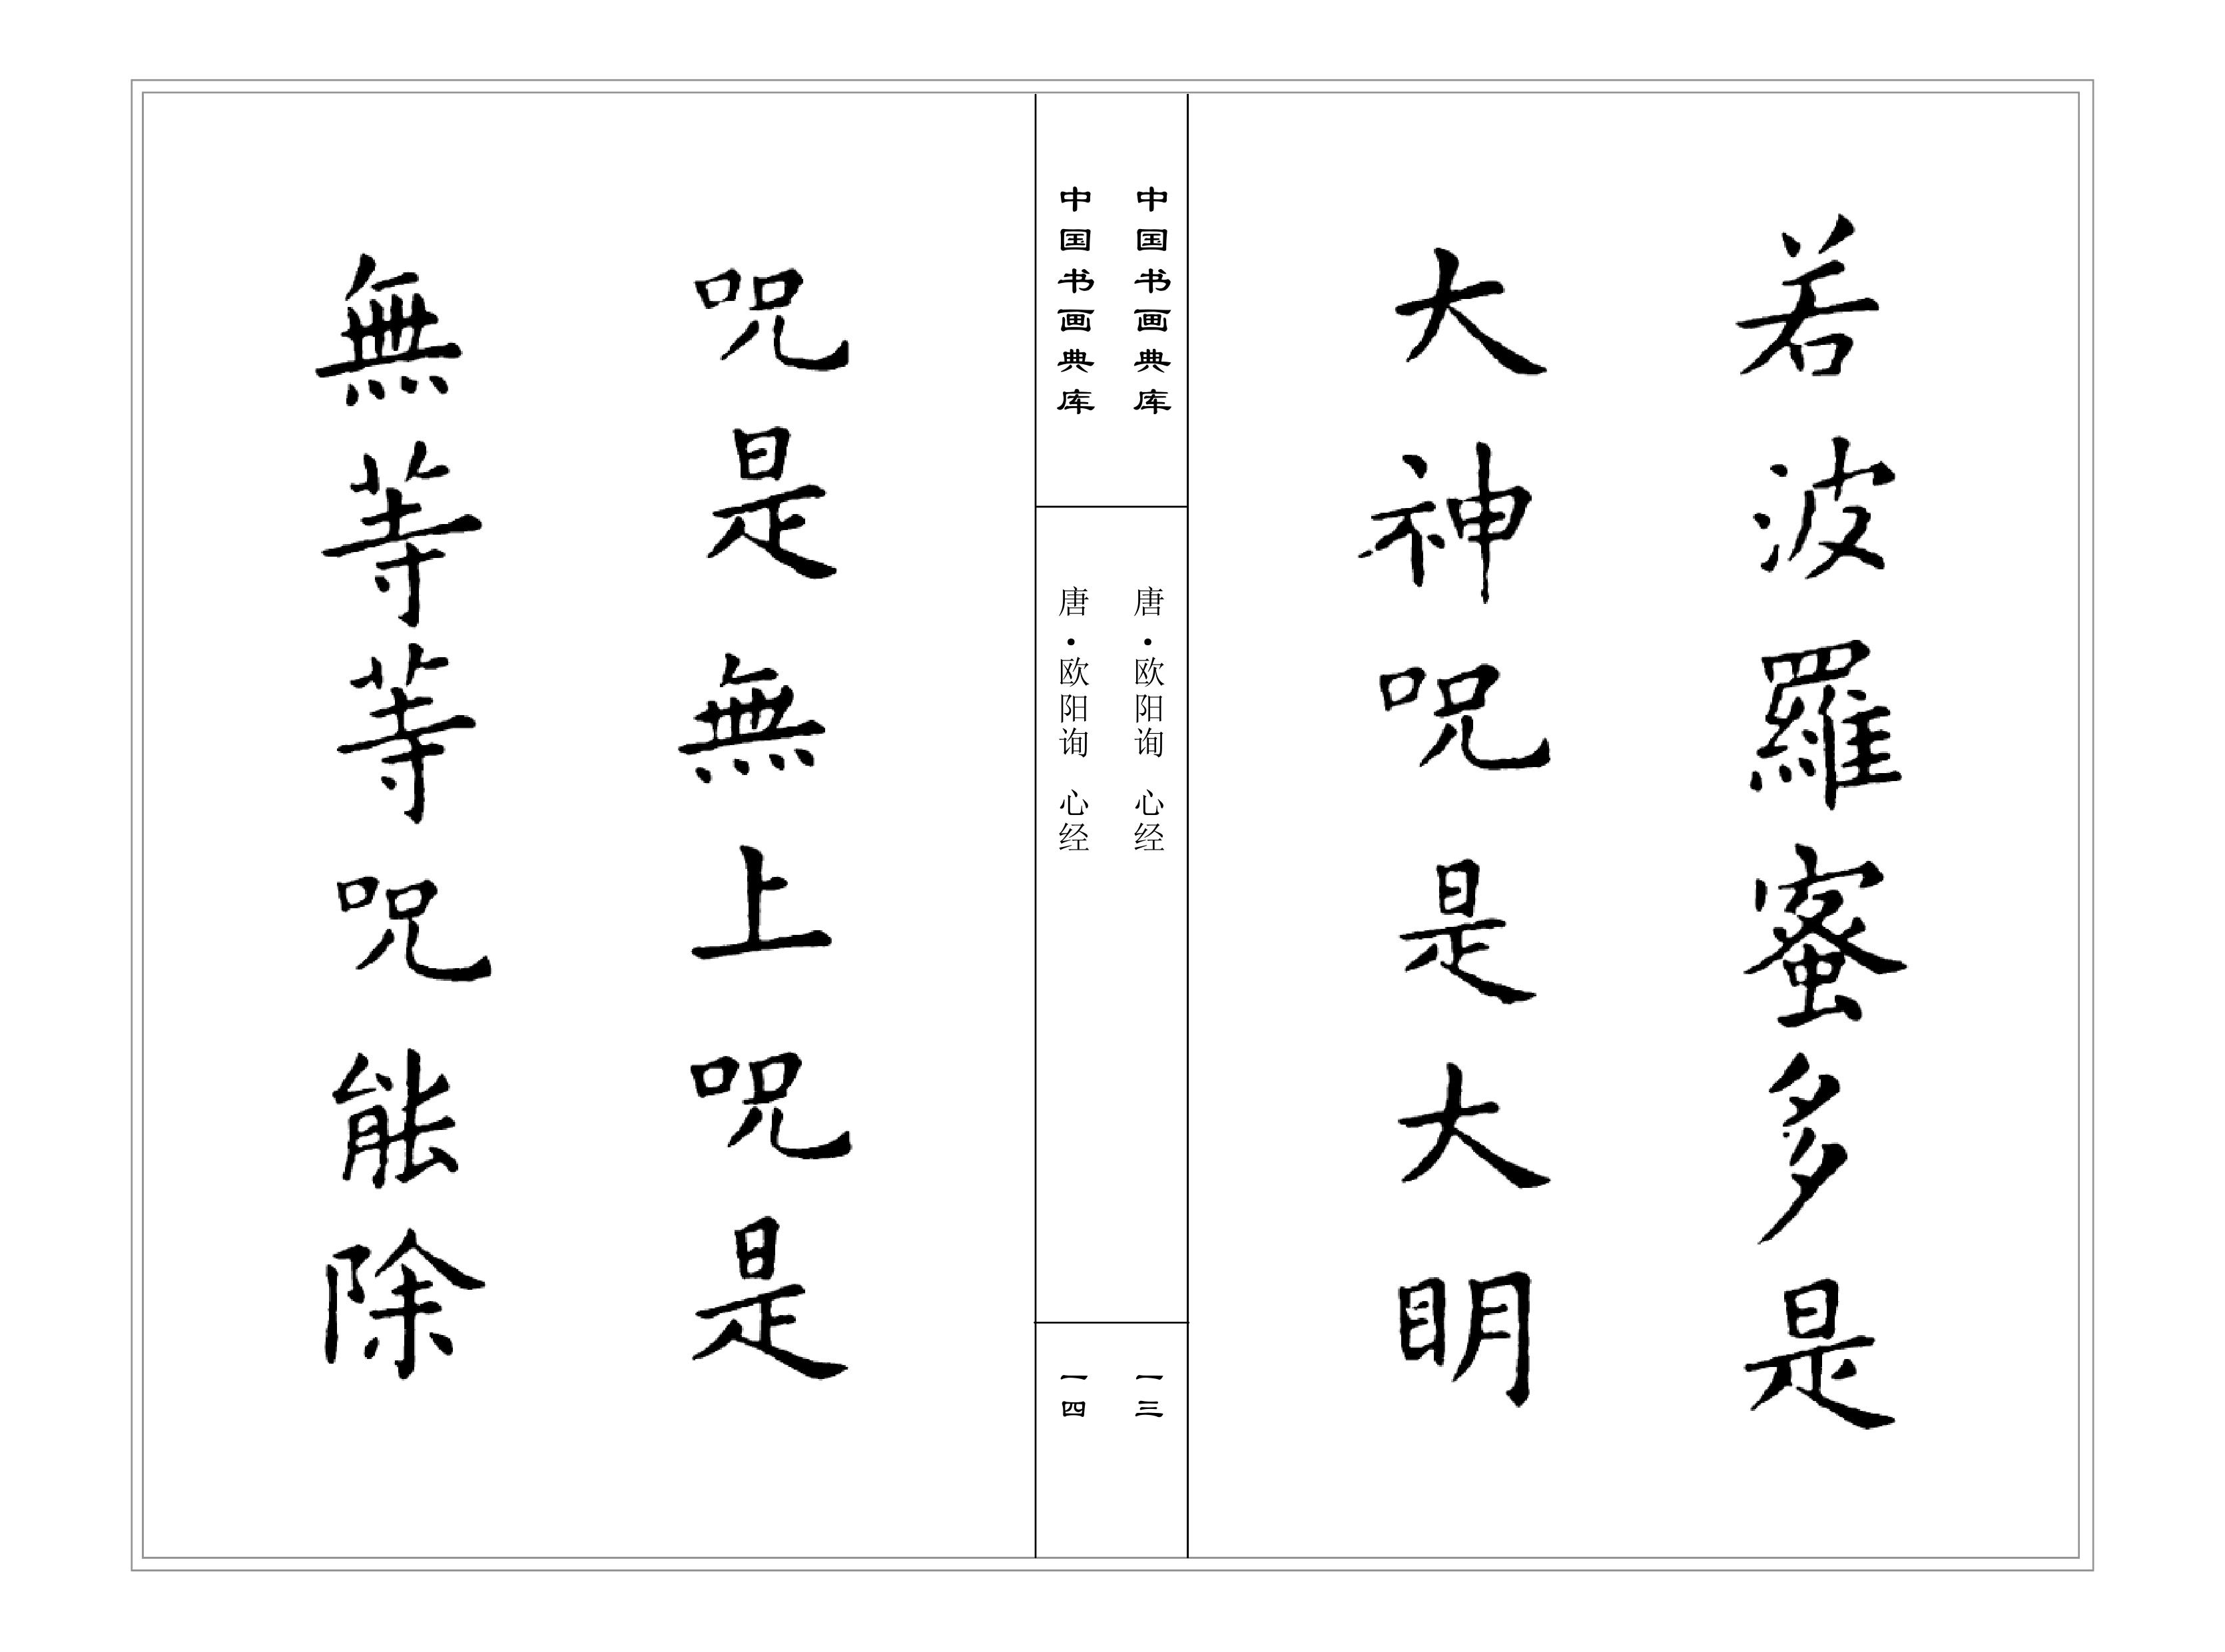 若波羅蜜多是
大神呪是大明
中国书画典库
唐·欧阳询 心经
一三
中国书画典库
唐·欧阳询 心经
一四
呪是無上呪是
無等等呪能除